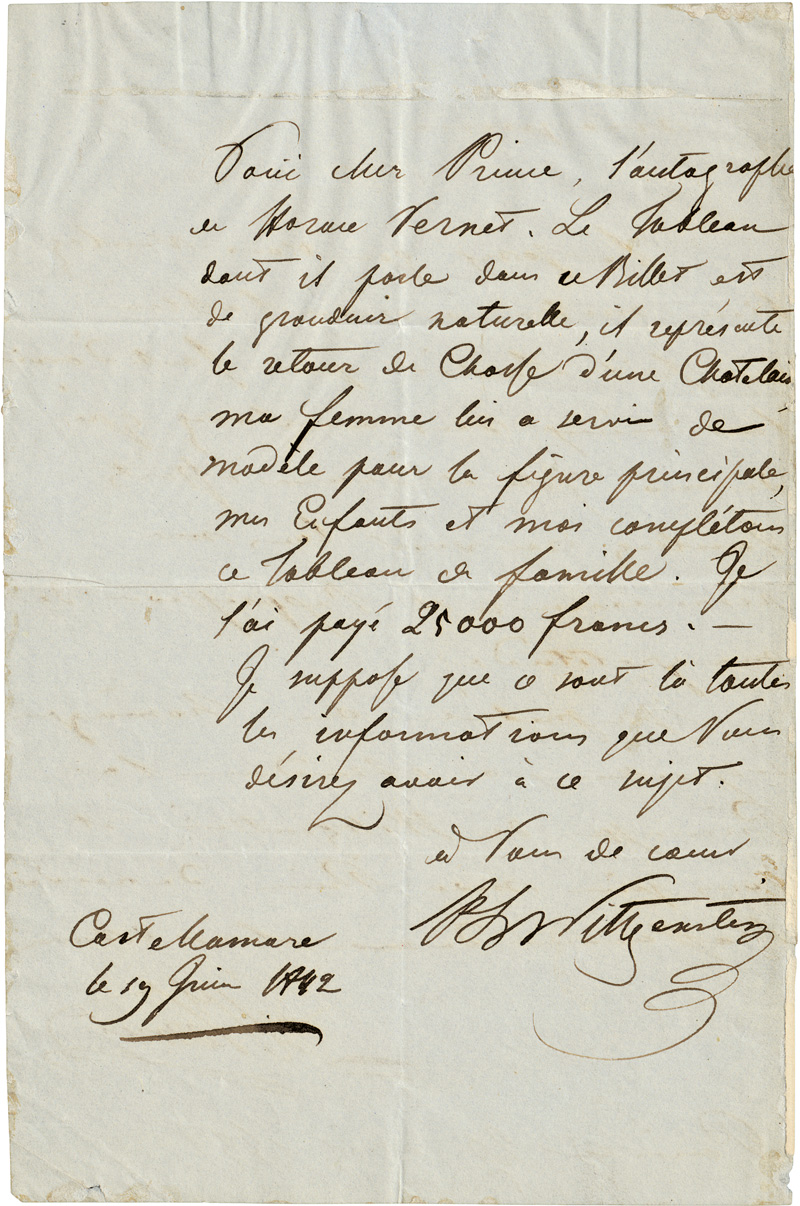 Voici cher Prince, l'autographe
de Horace Vernet. Le Tableau
dont il parle dans ce Billet est
de grandeur naturelle, il représente
le retour de Chasse d'une Chatelaine
ma femme lui a servi de
modèle pour la figure principale,
mes Enfants et moi complétons
ce Tableau de famille. Je
l'ai payé 25000 francs. —
Je suppose que ce sont là toutes
les informations que Vous
désirez avoir à ce sujet.
à Vous de cœur
Wittgenstein
Castellamare
le 19 Juin 1842